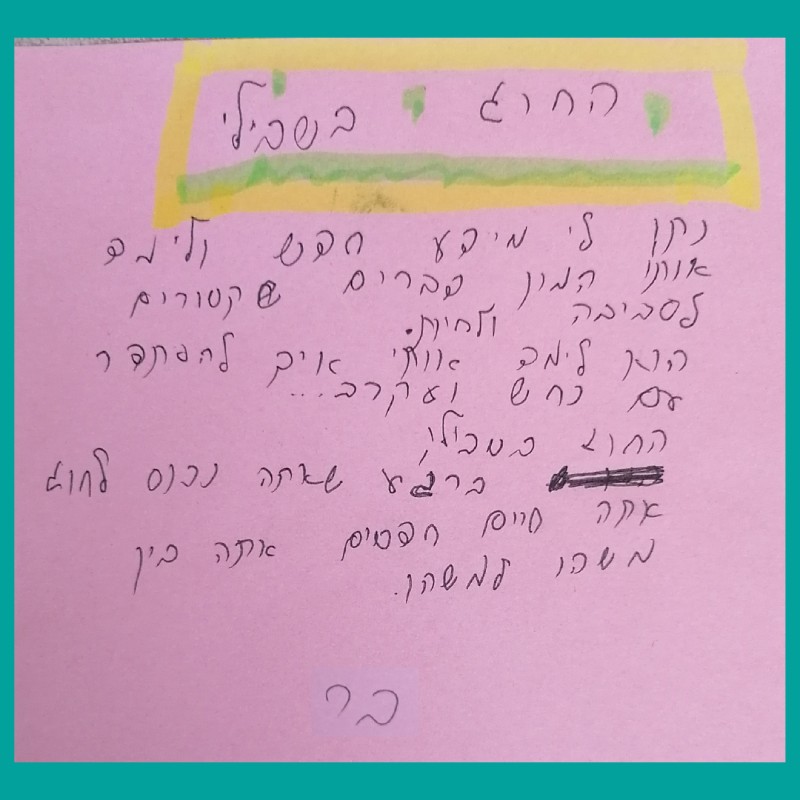 החוג בשבילי
נתן לי מידע חדש ולימד
אותי המון דברים שקשורים
לסביבה ולחיות.
הוא לימד אותי איך להסתדר
עם נחש ועקרב...
החוג בשבילי
ברגע שאתה נכנס לחוג
אתה חיים חדשים אתה בין
משהו למשהו.
בר